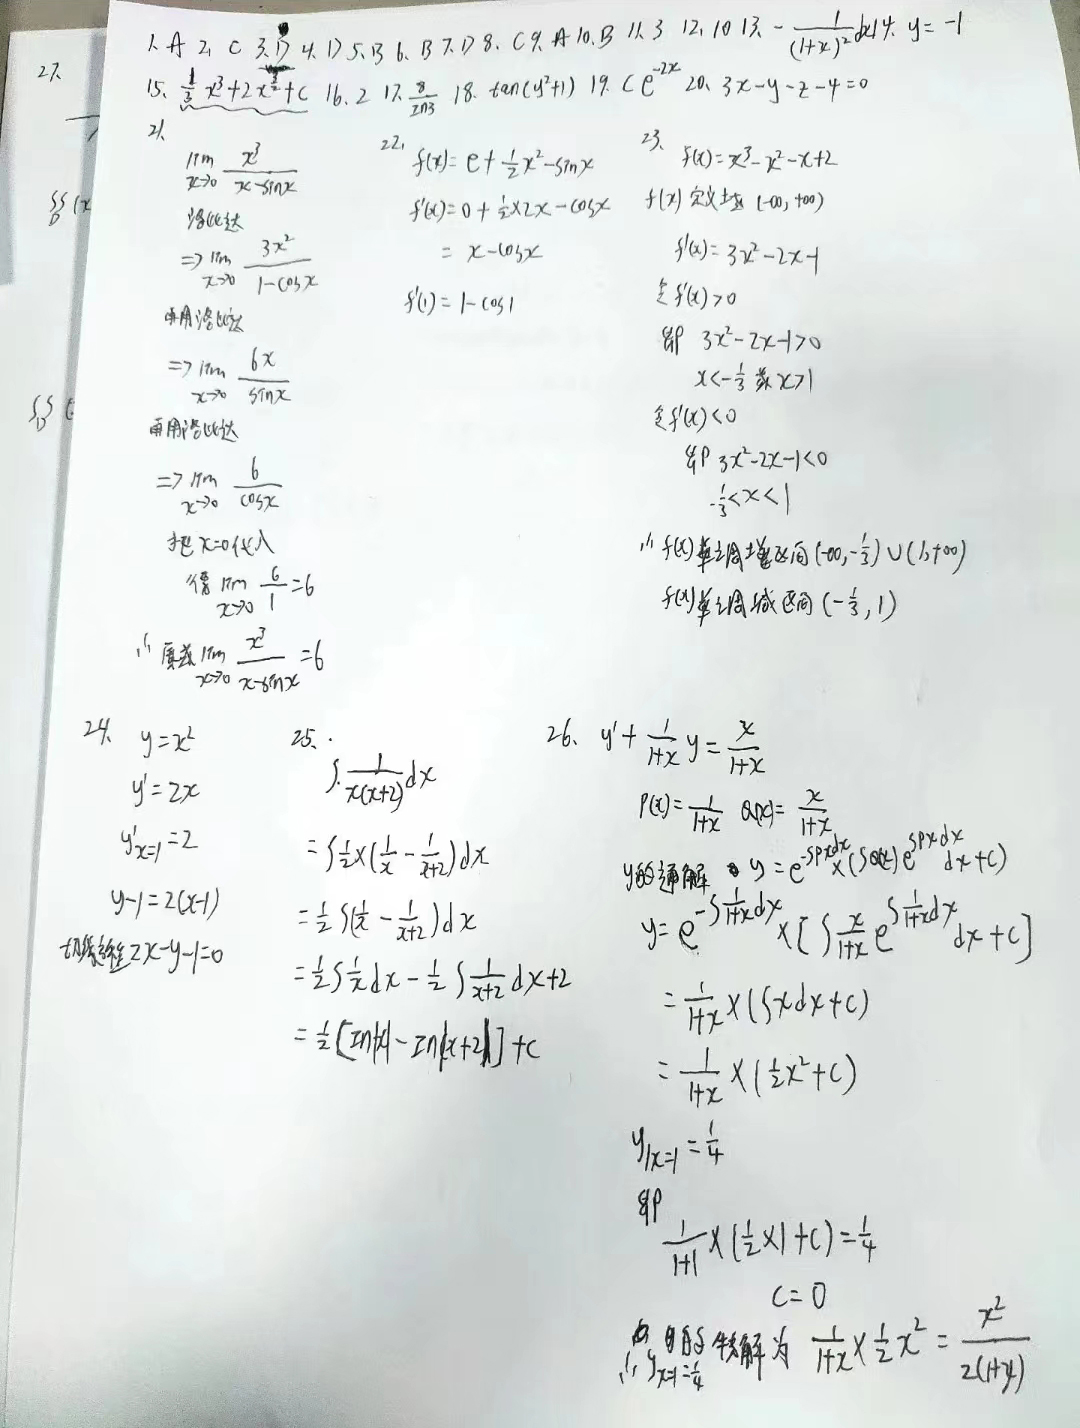 1. A 2. C 3. D 4. D 5. B 6. B 7. D 8. C 9. A 10. B 11. 3 12. 10 13. -\frac{1}{(1+x)^2}dx 14. y=-1
15. \frac{1}{3}x^3+2x^{\frac{3}{2}}+C 16. 2 17. \frac{8}{ln3} 18. tan(y²+1) 19. Ce^{-2x} 20. 3x-y-z-4=0
21.
lim_{x→0} \frac{x³}{x-sinx}
洛必达
=> lim_{x→0} \frac{3x²}{1-cosx}
再用洛必达
=> lim_{x→0} \frac{6x}{sinx}
再用洛必达
=> lim_{x→0} \frac{6}{cosx}
把x=0代入
得 lim_{x→0} \frac{6}{1}=6
∴ 原式 lim_{x→0} \frac{x³}{x-sinx}=6
22. f(x)=e+\frac{1}{2}x²-sinx
f'(x)=0+\frac{1}{2}×2x-cosx
= x-cosx
f'(1)=1-cos1
23. f(x)=x³-x²-x+2
f(x)定义域(-∞,+∞)
f'(x)=3x²-2x-1
令f'(x)>0
即 3x²-2x-1>0
x<-\frac{1}{3} 或 x>1
令f'(x)<0
即 3x²-2x-1<0
-\frac{1}{3}<x<1
∴ f(x)单调增区间(-∞,-\frac{1}{3})∪(1,+∞)
f(x)单调减区间(-\frac{1}{3},1)
24. y=x²
y'=2x
y'_{x=1}=2
y-1=2(x-1)
切线方程2x-y-1=0
25.
∫\frac{1}{x(x+2)}dx
=∫\frac{1}{2}×(\frac{1}{x}-\frac{1}{x+2})dx
=\frac{1}{2}∫(\frac{1}{x}-\frac{1}{x+2})dx
=\frac{1}{2}∫\frac{1}{x}dx-\frac{1}{2}∫\frac{1}{x+2}dx+2
=\frac{1}{2}[ln|x|-ln|x+2|]+C
26. y'+\frac{1}{1+x}y=\frac{x}{1+x}
P(x)=\frac{1}{1+x} Q(x)=\frac{x}{1+x}
y的通解 y=e^{-∫Pxdx}×(∫Q(x)e^{∫Pxdx}dx+C)
y=e^{-∫\frac{1}{1+x}dx}×[∫\frac{x}{1+x}e^{∫\frac{1}{1+x}dx}dx+C]
=\frac{1}{1+x}×(∫xdx+C)
=\frac{1}{1+x}×(\frac{1}{2}x²+C)
y|_{x=1}=\frac{1}{4}
即
\frac{1}{1+1}×(\frac{1}{2}×1+C)=\frac{1}{4}
C=0
∴ y_{x=1}=\frac{1}{4} 的特解为 \frac{1}{1+x}×\frac{1}{2}x²=\frac{x²}{2(1+x)}
27.
∬_D (x
∬_D (